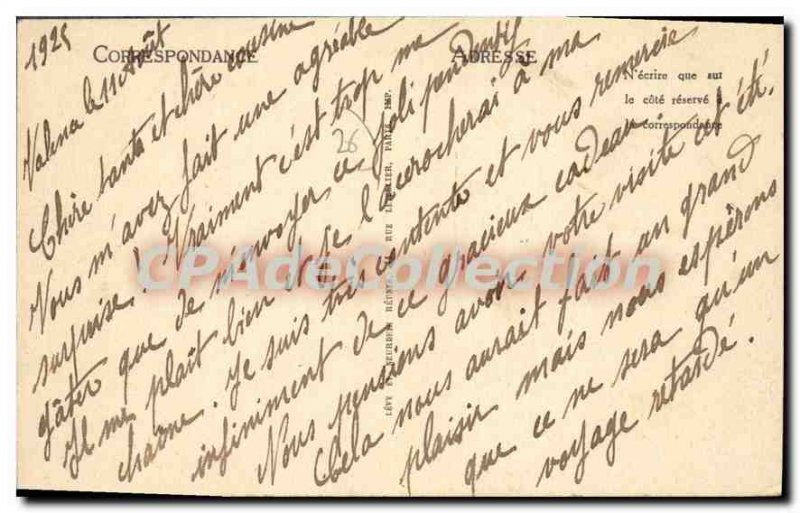 1925
CORRESPONDANCE
ADRESSE
N'écrire que sur
le côté réservé à
la correspondance
Valence le 11 Août
Chère tante et chère cousine
Vous m'avez fait une agréable
surprise! Vraiment c'est trop me
gâter que de m'envoyer ce joli pendentif
Il me plaît bien et je l'accrocherai à ma
chaîne. Je suis très contente et vous remercie
infiniment de ce gracieux cadeau.
Nous pensions avoir votre visite cet été.
Cela nous aurait fait un grand
plaisir mais nous espérons
que ce ne sera qu'un
voyage retardé.
26
LÉVY ET NEURDEIN RÉUNIS, RUE LETELLIER, PARIS, IMP.
CPAdeCollection